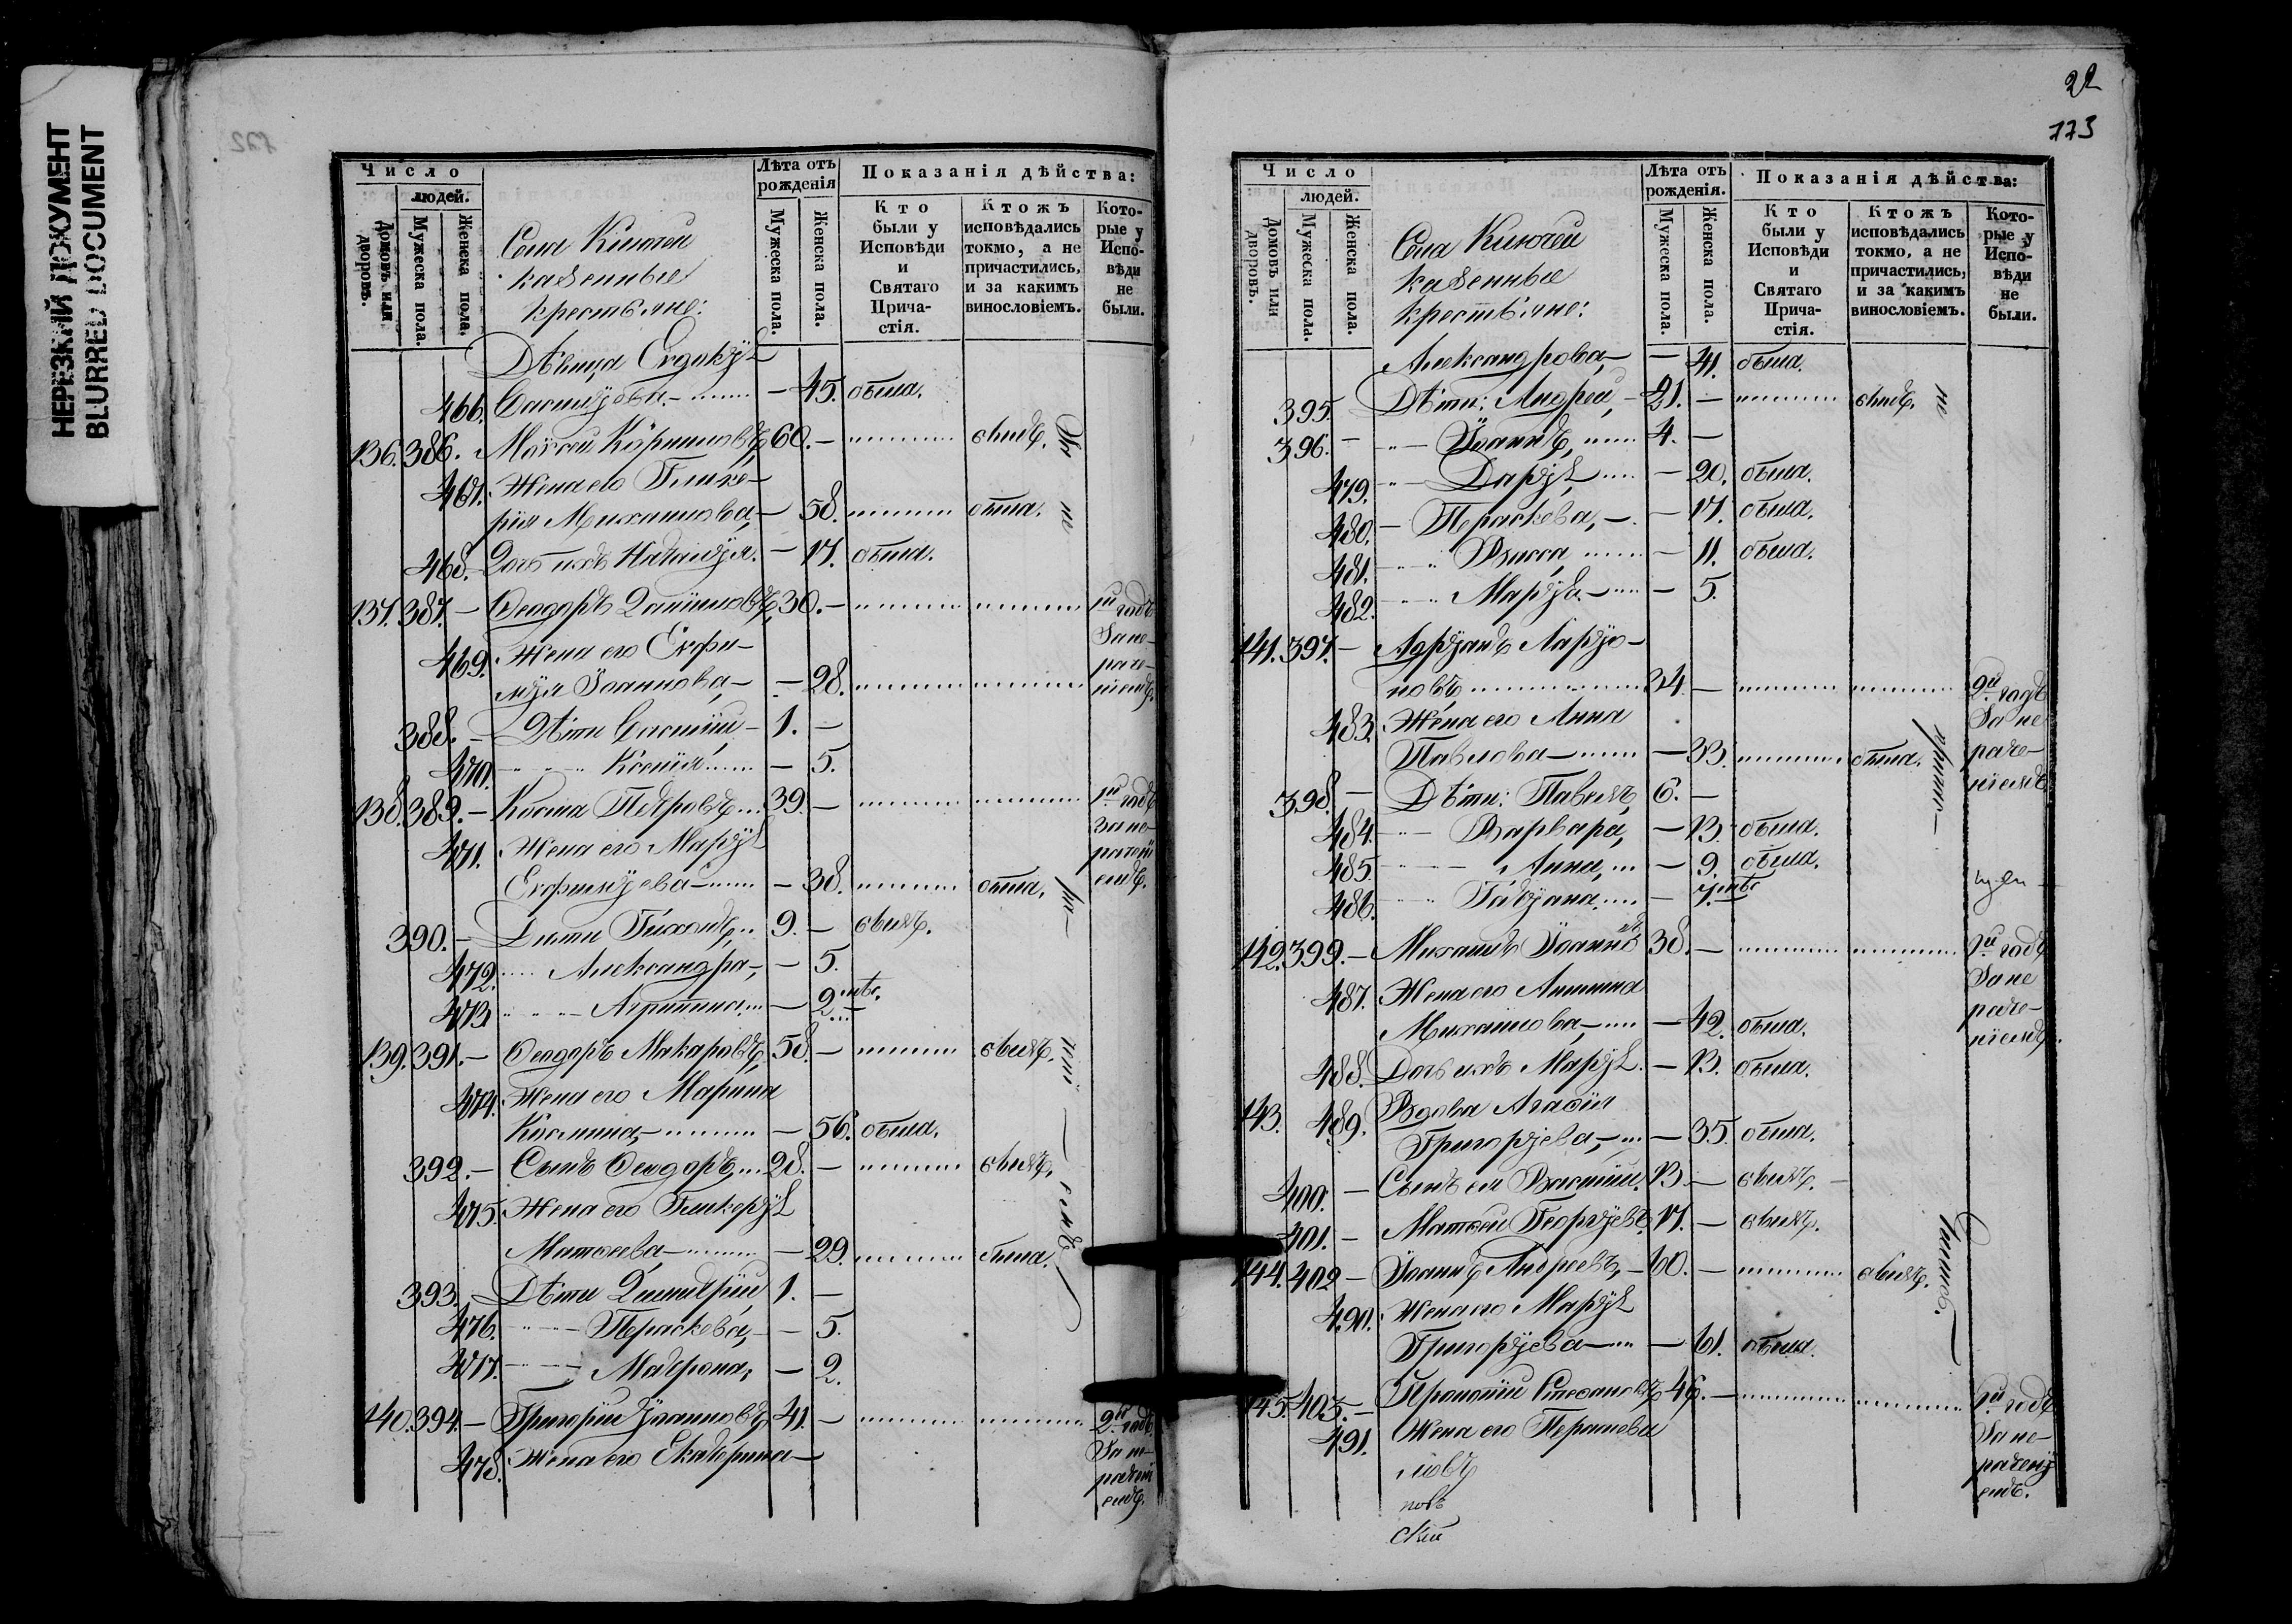 НЕРЕЗКИЙ ДОКУМЕНТ
BLURRED DOCUMENT
Число
людей.
Домовъ или дворовъ.
Мужеска пола.
Женска пола.
Села Ключей
казенные
крестьяне:
Лѣта отъ
рожденія
Мужеска пола.
Женска пола.
Показанія дѣйства:
Кто
были у
Исповѣди
и
Святаго
Прича-
стія.
Ктожъ
исповѣдались
токмо, а не
причастились,
и за какимъ
винословіемъ.
Кото-
рые у
Испо-
вѣди
не
были.
Дѣвица Евдокія
466. Василіева - 45. была.
136. 386. Моѵсей Кориловъ, 60. - былъ.
467. Жена его Глике-
рія Михаилова, - 58. была.
468. Дочь ихъ Наталія. - 17. была.
137. 387. - Ѳеодоръ Даниловъ, 30. - 1й годъ
469. Жена его Евфи- За не-
мія Іоаннова, - 28. раче-
ніемъ.
388. - Дѣти Василій - 1. -
470. Ксенія - 5.
138. 389. - Косма Петровъ 39. - 1й годъ
За не-
471. Жена его Марія рачені
Евфиміева - 38. была. емъ.
390. - Дѣти Тихонъ, 9. - былъ.
472. Александра, - 5.
473. Агриппина - 2 мѣс.
139. 391. - Ѳеодоръ Макаровъ, 58. - былъ.
474. Жена его Марина
Космина, - 56. была.
392. - Сынъ Ѳеодоръ, 28. - былъ.
475. Жена его Гликерія
Матѳеева, - 29. была.
393. - Дѣти Димитрій 1. -
476. Параскева, - 5.
477. Матрона, - 2.
140. 394. - Григорій Іоанновъ, 41. - 2й годъ
478. Жена его Екатерина За не-
рачені
емъ.
22
173
Число
людей.
Домовъ или дворовъ.
Мужеска пола.
Женска пола.
Села Ключей
казенные
крестьяне:
Лѣта отъ
рожденія.
Мужеска пола.
Женска пола.
Показанія дѣйства:
Кто
были у
Исповѣди
и
Святаго
Прича-
стія.
Ктожъ
исповѣдались
токмо, а не
причастились,
и за какимъ
винословіемъ.
Кото-
рые у
Испо-
вѣди
не
были.
Александрова, - 41. была.
395. Дѣти: Андрей, - 21. - былъ.
396. - Іоаннъ, 4. -
479. Дарія, - 20. была.
480. - Параскева, - 17. была.
481. Васса, - 11. была.
482. Марія - 5.
141. 397. - Адріанъ Ларіо-
новъ 34. - 2й годъ
483. Жена его Анна За не
Павлова - 33. была. раче-
398. - Дѣти: Павелъ, 6. - ніемъ
484. Варвара, - 13. была.
485. Анна, - 9. была.
486. Татіана - 7 мѣс
142. 399. - Михаилъ Іоанновъ 38. - 1й годъ
487. Жена его Анна За не
Михаилова, - 42. была. раче-
ніемъ.
488. Дочь ихъ Марія. - 13. была.
143. 489. Вдова Агаѳія
Григоріева, - 35. была.
400. - Сынъ ея Василій. 13. - былъ.
401. - Матѳей Георгіевъ. 17. - былъ.
144. 402 - Іоаннъ Андреевъ, - 60. - былъ.
490. Жена его Марія
Григоріева - 61. была.
145. 403. - Прокопій Стефановъ, 46. - 1й годъ
491. Жена его За не-
раченi
емъ.
ловъ
новъ
скій